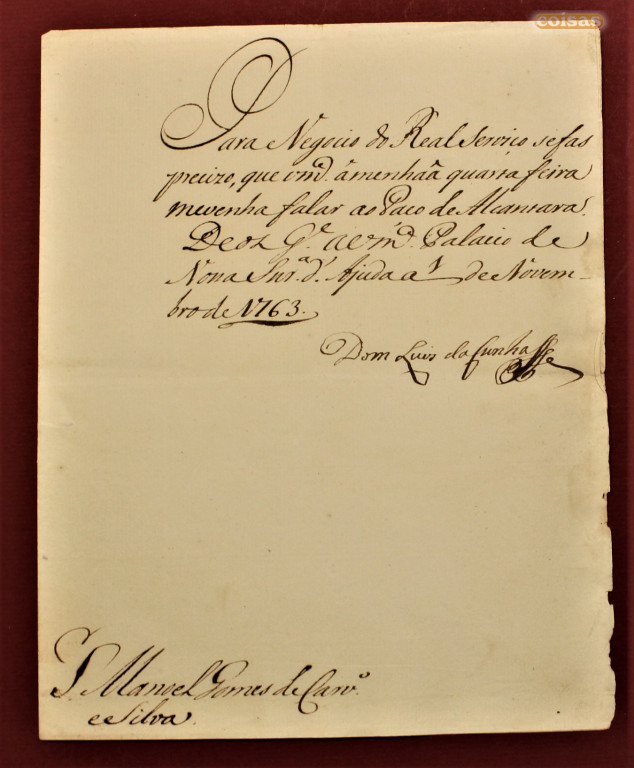 coisas
Para Negocio do Real Serviço se fas
precizo, que vm.ᵉ âmenhaã quarta feira
mevenha falar ao Paço de Alcantara.
Deos G.ᵉ a vm.ᵉ Palacio de
Nossa Snr.ª d' Ajuda a de Novem-
bro de 1763.
Dom Luis da Cunha
S.ʳ Manoel Gomes de Carv.º
e Silva.